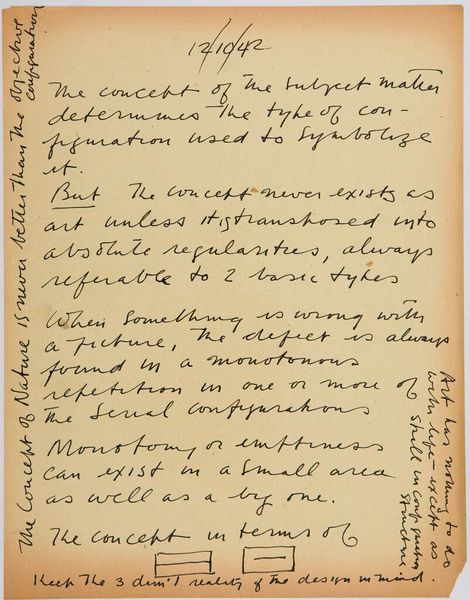 12/10/42
The concept of the subject matter
determines the type of con-
figuration used to symbolize
it.
But The concept never exists as
art unless it is transposed into
absolute regularities, always
referable to 2 basic types
When something is wrong with
a picture, the defect is always
found in a monotonous
repetition in one or more of
the serial configurations
Monotony or emptiness
can exist in a small area
as well as a big one.
The concept in terms of
Keep the 3 dim'l reality of the design in mind.
The Concept of Nature is never better than the objective
configuration
Art has nothing to do
with life - except as
skill in configuration
structure